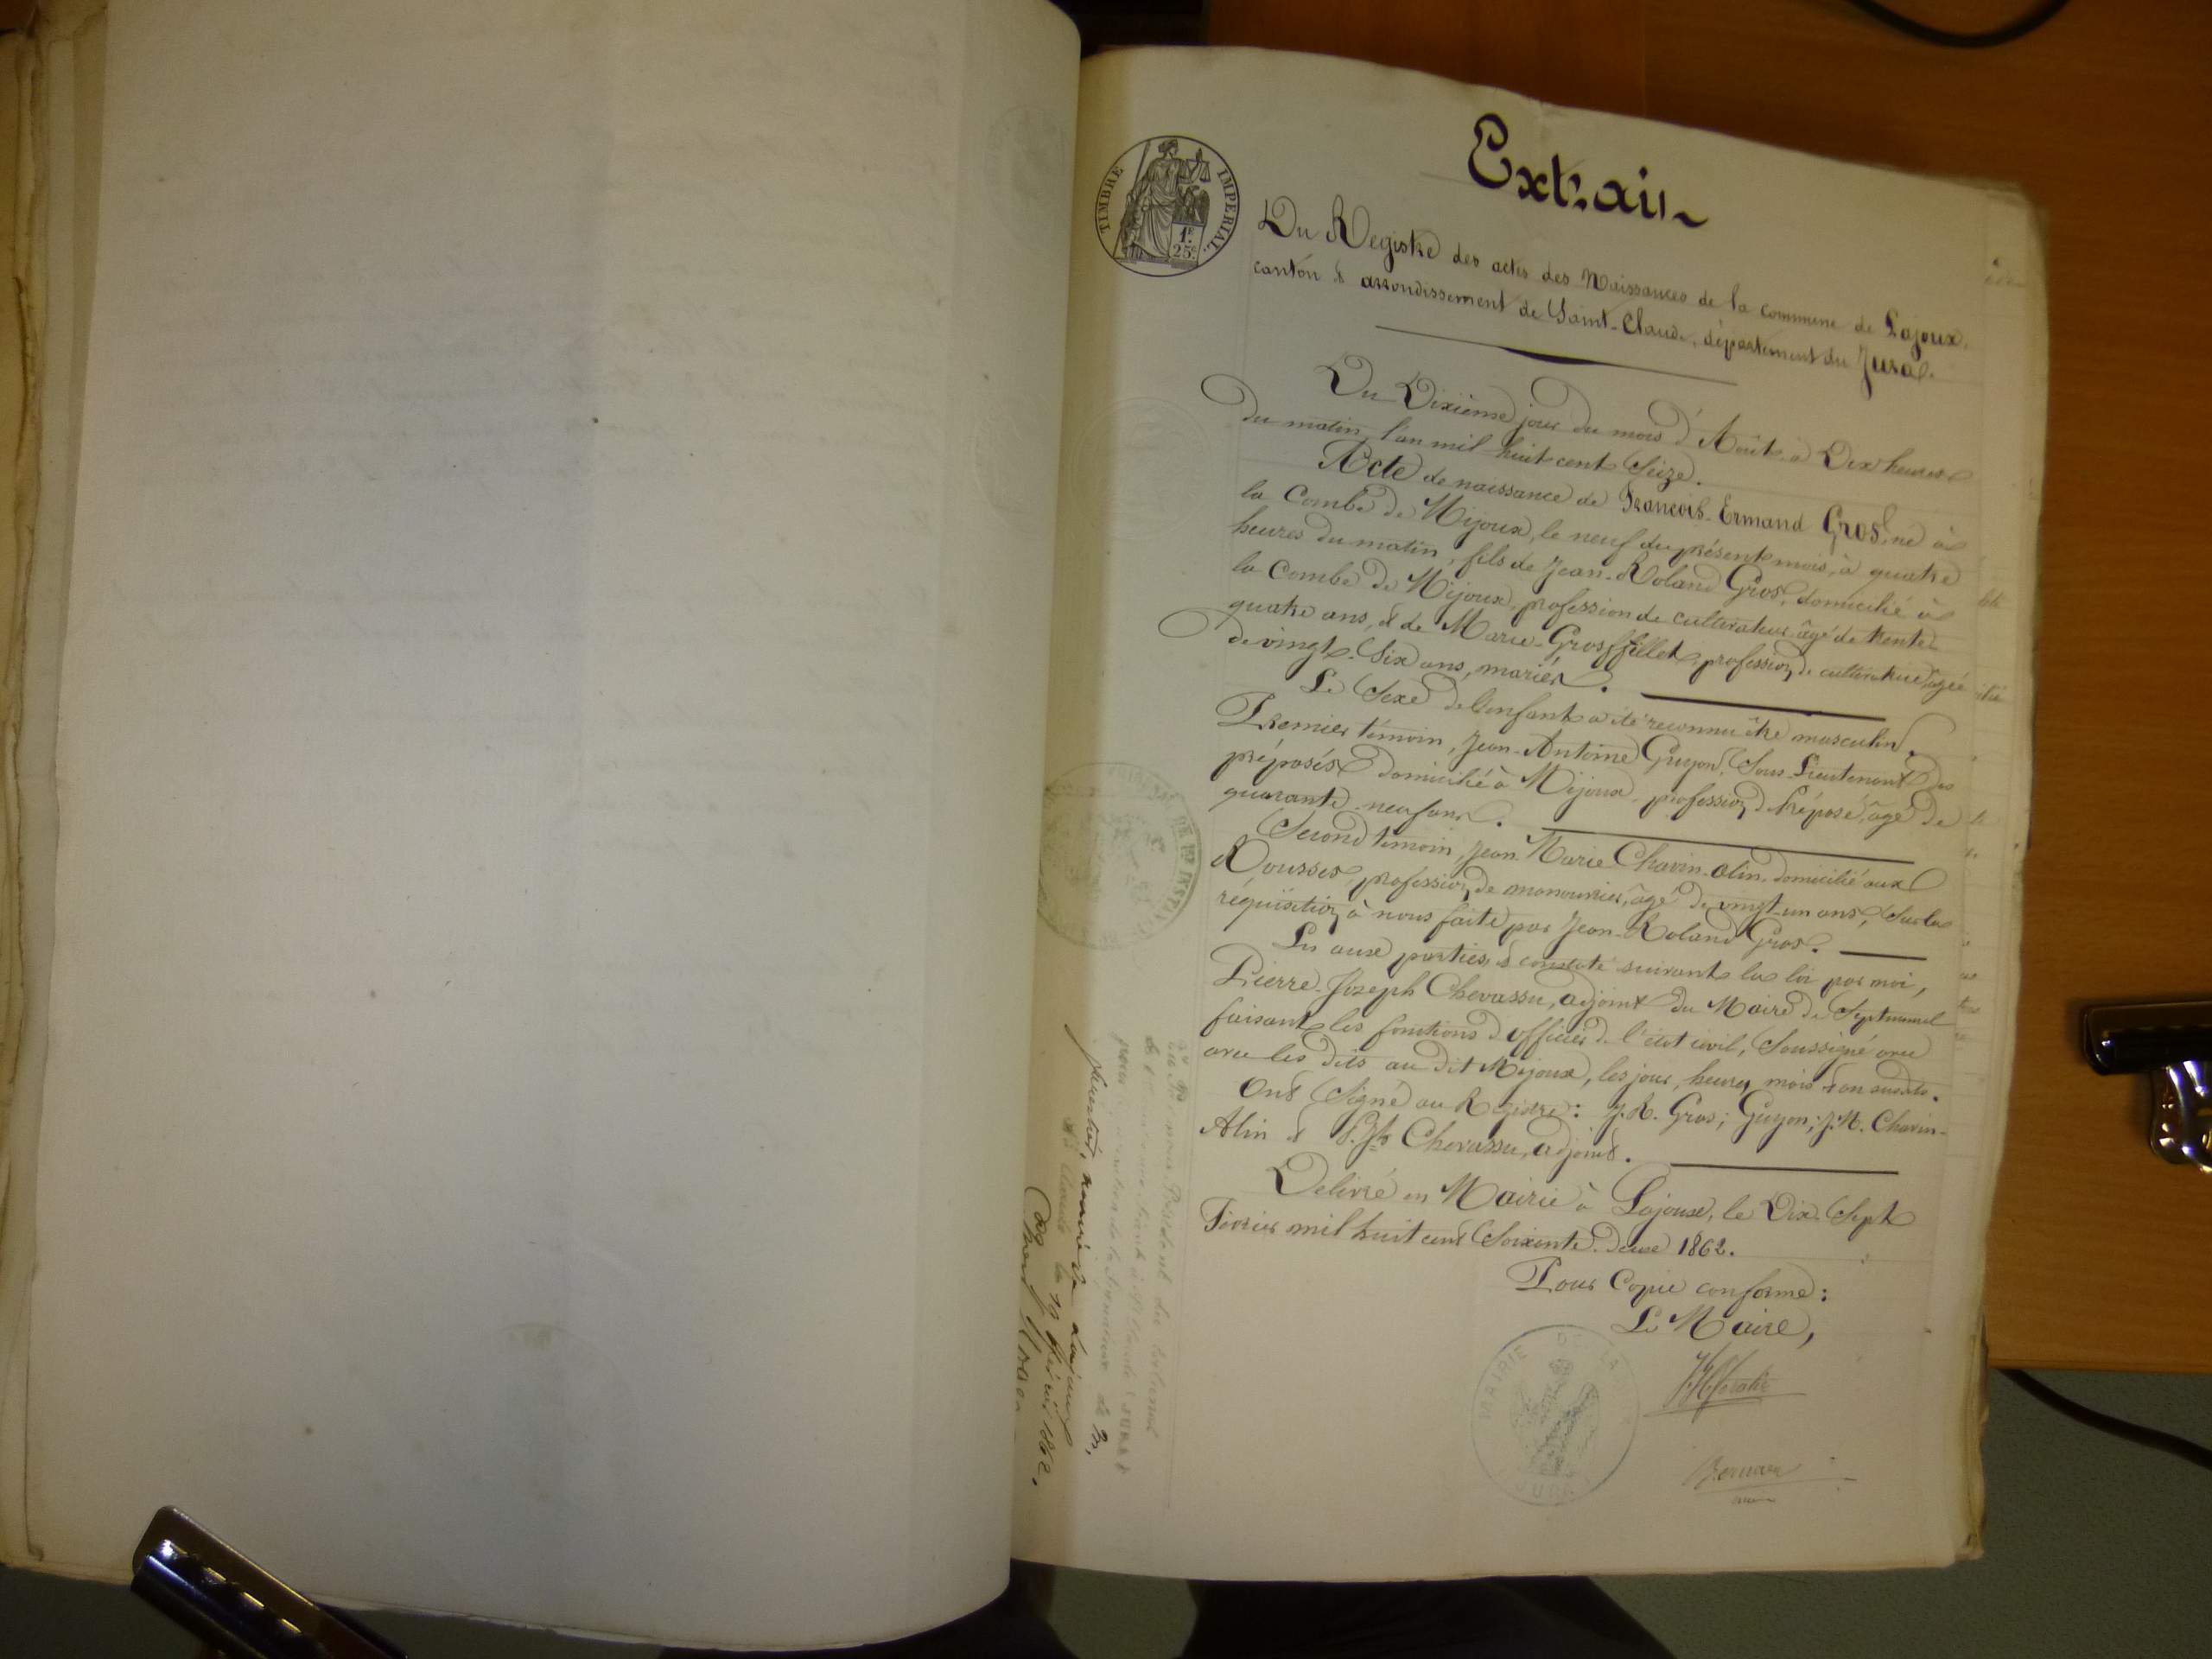 Extrait
TIMBRE IMPERIAL
1F. 25c.
Du Registre des actes des Naissances de la commune de Lajoux,
canton & arrondissement de Saint-Claude, département du Jura.
Du Dixième jour du mois d'Août à Dix heures
du matin, l'an mil huit cent Seize.
Acte de naissance de François-Ermand Gros, né à
la Combe de Mijoux, le neuf du présent mois, à quatre
heures du matin, fils de Jean-Roland Gros, domicilié à
la Combe de Mijoux, profession de cultivateur, âgé de trente
quatre ans, & de Marie-Grosffillet, profession de cultivatrice, âgée
de vingt-Six ans, mariés.
Le Sexe de l'enfant a été reconnu être masculin.
Premier témoin, Jean-Antoine Guyon, Sous-Lieutenant des
préposés domicilié à Mijoux, profession de Préposé, âgé de
quarante-neuf ans.
Second témoin, Jean-Marie Chavin-Alin, domicilié aux
Rousses, profession de manouvrier, âgé de vingt-un ans, Sur la
réquisition à nous faite par Jean-Roland Gros.
Lu aux parties, & constaté suivant la loi par moi,
Pierre-Joseph Chevassu, adjoint du Maire de Septmoncel
faisant les fonctions d'officier de l'état civil, Soussigné avec
avec les dits au dit Mijoux, les jour, heure, mois & an susdits.
Ont Signé au Registre: J.R. Gros; Guyon; J.M. Chavin-
Alin & P. Jh Chevassu, adjoint.
Délivré en Mairie à Lajoux, le Dix-Sept
Février mil huit cent Soixante-deux 1862.
Pour Copie conforme:
Le Maire,
MAIRIE DE LA
JURA
Vu par nous Président du tribunal
de la Signature de Mr
maire de Lajoux
St Claude le 19 février 1862.